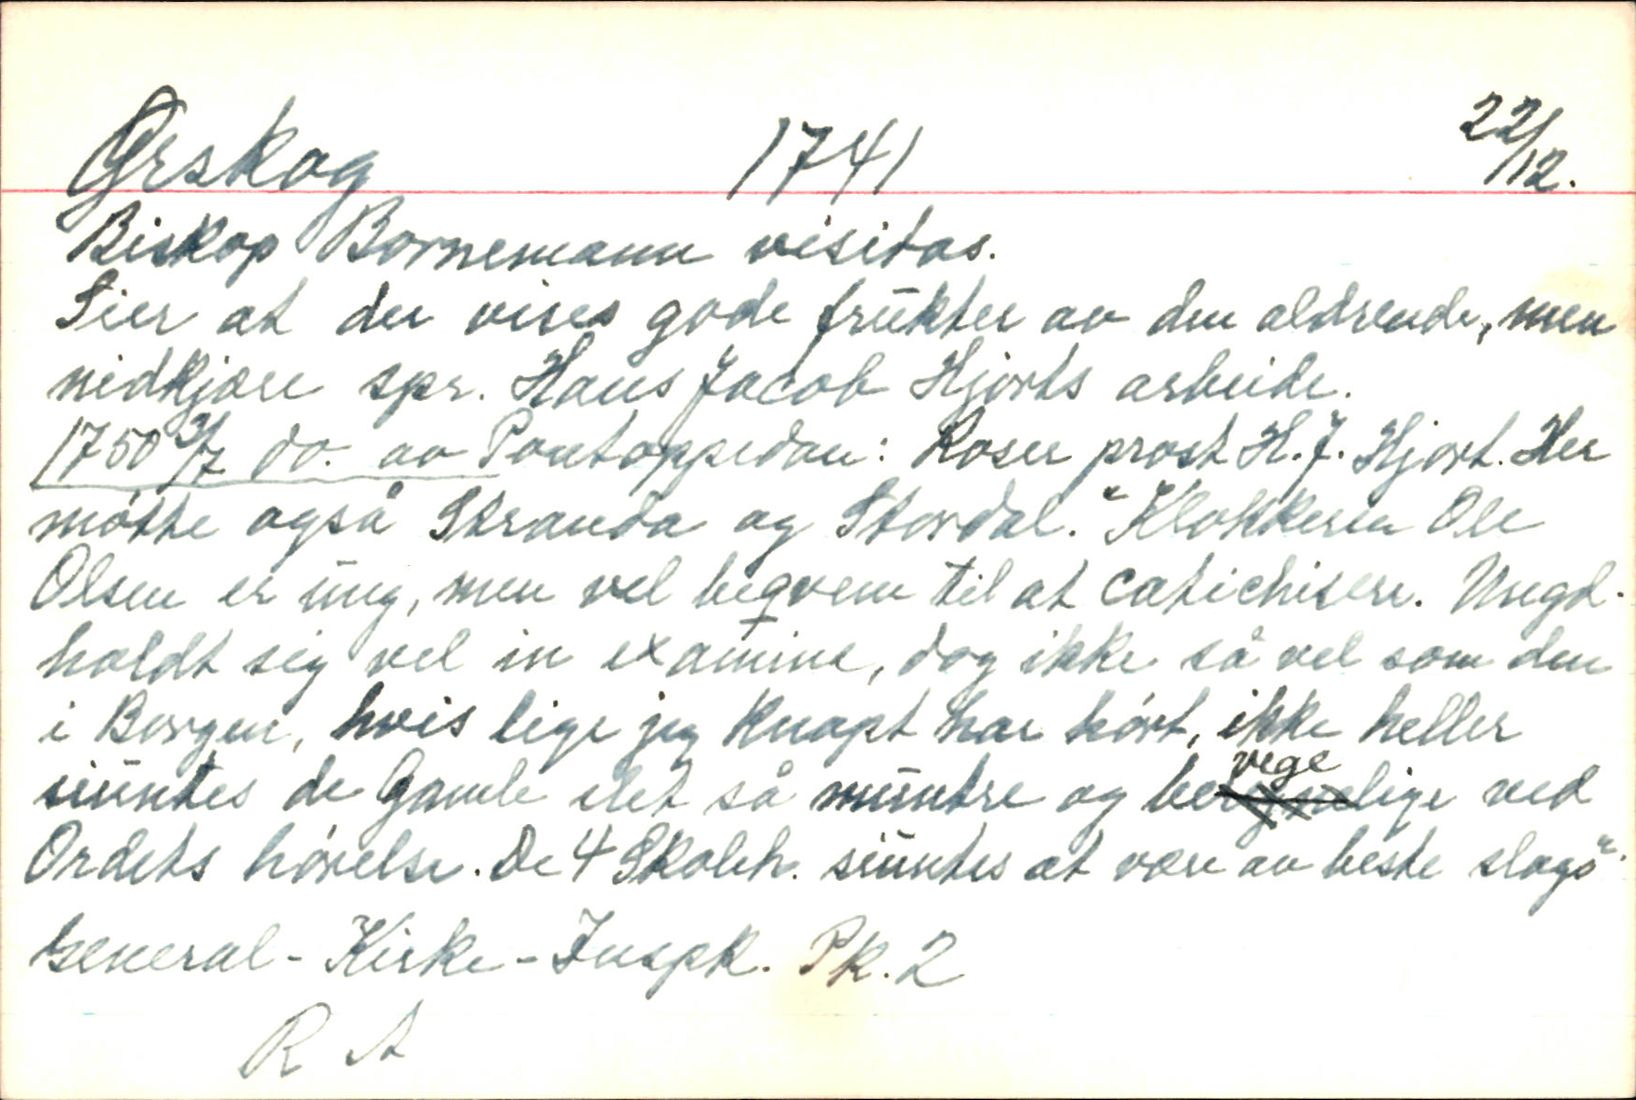 Ørskog 1741 22/12.
Biskop Bornemann visitas.
Sier at der vises gode frukter av den aldrende, men
nidkjære spr. Hans Jacob Hjorts arbeide.
1750 3/7 do. av Pontoppidan: Roser prost H. J. Hjort. Her
møtte også Stranda og Stordal. "Klokkeren Ole
Olsen er ung, men vel beqvem til at catichisere. Ungd.
holdt sig vel in examine, dog ikke så vel som den
i Borgen, hvis lige jeg knapt har hørt, ikke heller
siuntes de Gamle slet så muntre og bevegelige ved
Ordets hørelse. De 4 Skoleh. siuntes at være av beste slags".
General-Kirke-Inspk. Pk. 2
R A